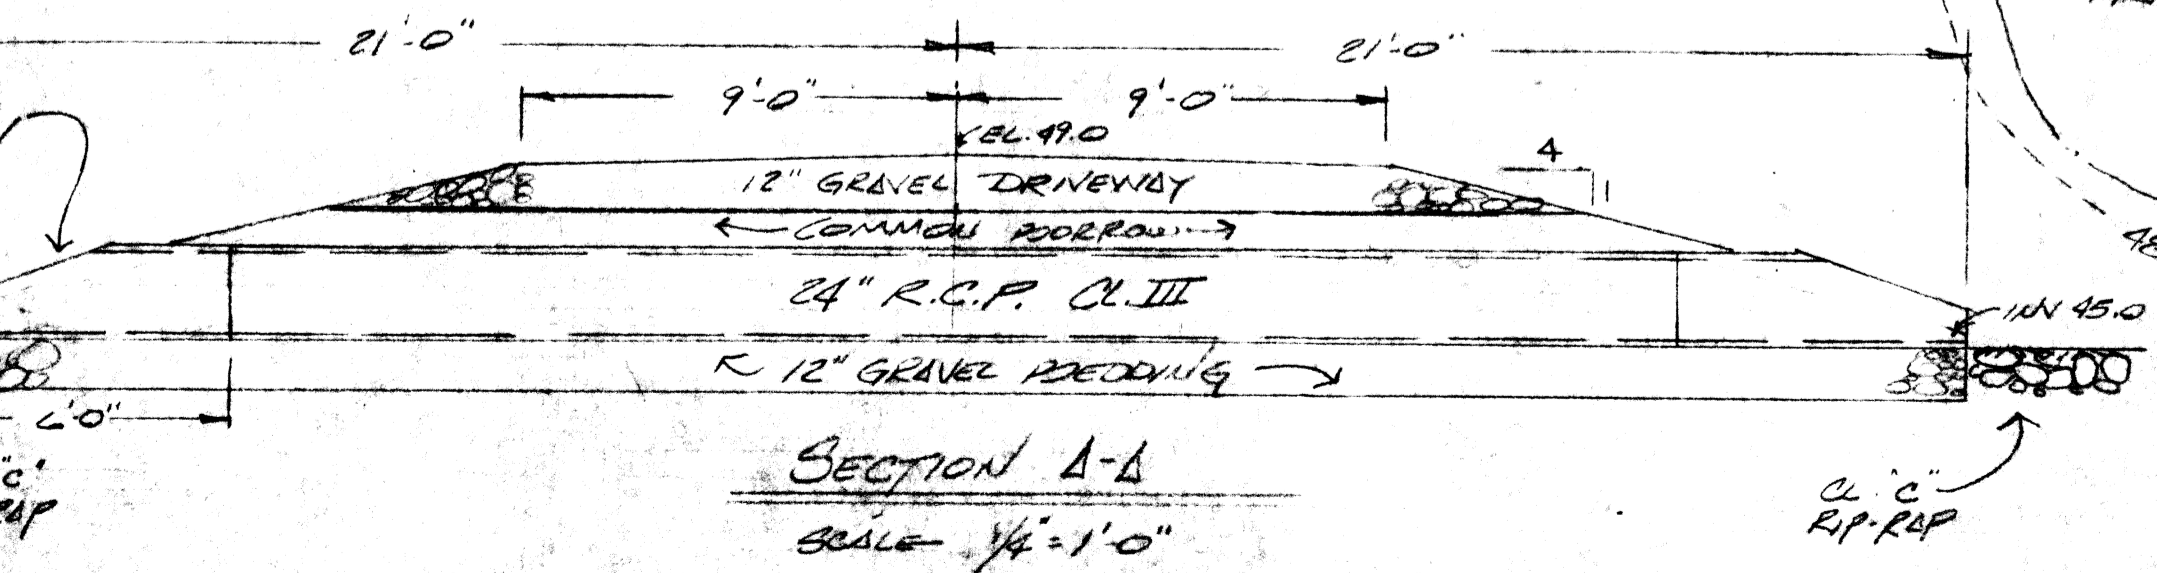 21'-0"
21'-0"
9'-0"
9'-0"
EL. 49.0
4
1
12" GRAVEL DRIVEWAY
COMMON BORROW
24" R.C.P. CL. III
INV 45.0
12" GRAVEL BEDDING
"C"
CL. "C"
RIP-RAP
SECTION A-A
SCALE 1/4" = 1'-0"